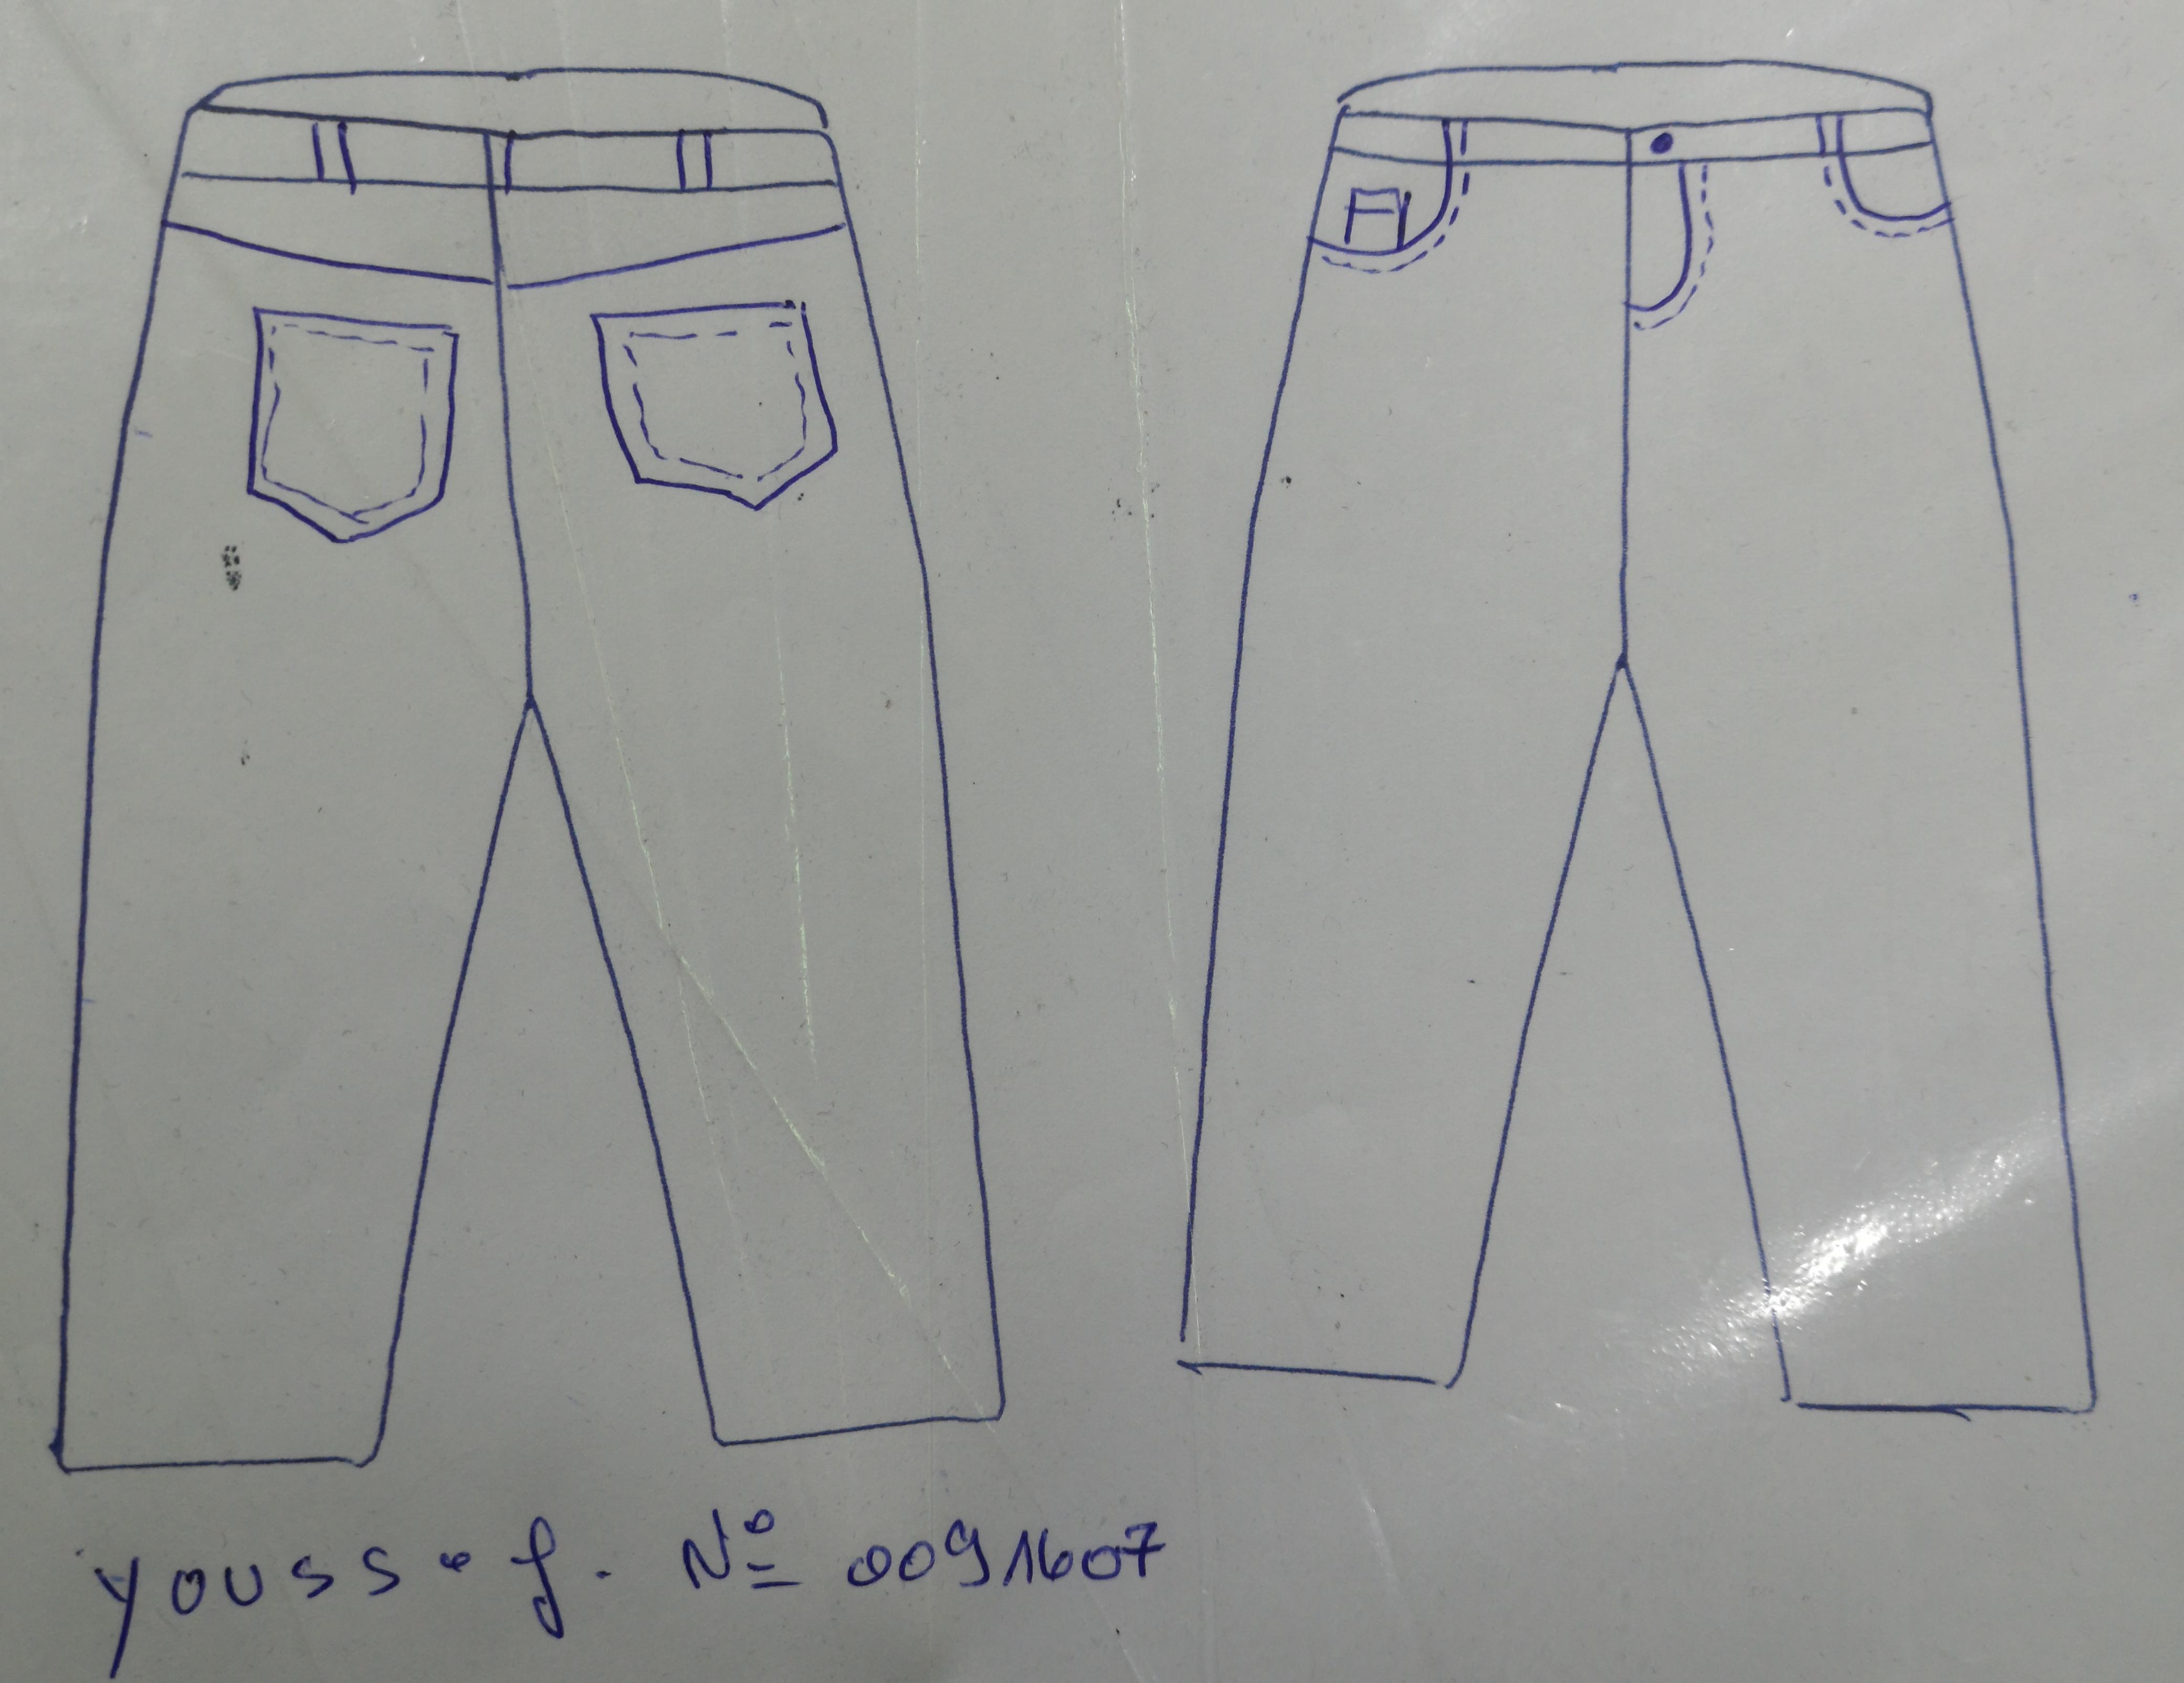 youssef. Nº 0091607